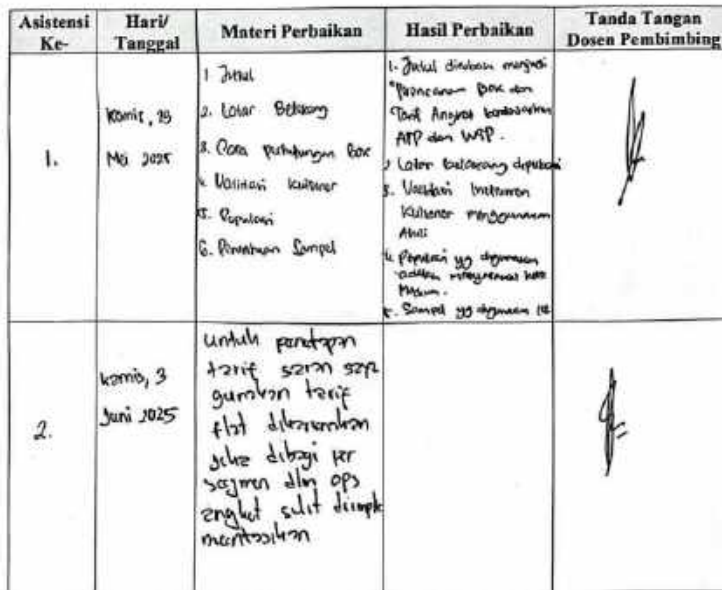 Asistensi Ke-
Hari/ Tanggal
Materi Perbaikan
Hasil Perbaikan
Tanda Tangan Dosen Pembimbing
1.
Kamis,
Mei 2025
1. Judul
2. Latar Belakang
3. Cara perhitungan Box
4. Validasi kuisoner
5. Populasi
6. Penentuan Sampel
1. Judul dirubah menjadi
"Perencanaan BOK dan
Tarif Angkot berdasarkan
ATP dan WTP.
2. Latar belakang diperbaiki
3. Validasi Instrumen
Kuisoner menggunakan
Ahli
4. Populasi yg digunakan
adalah
5. Sampel yg digunakan
2.
kamis, 3
Juni 2025
untuk penetapan
tarif saran saya
gunakan tarif
flat dikarenakan
jika dibagi per
segmen dlm ops
angkot sulit diimple
mentasikan